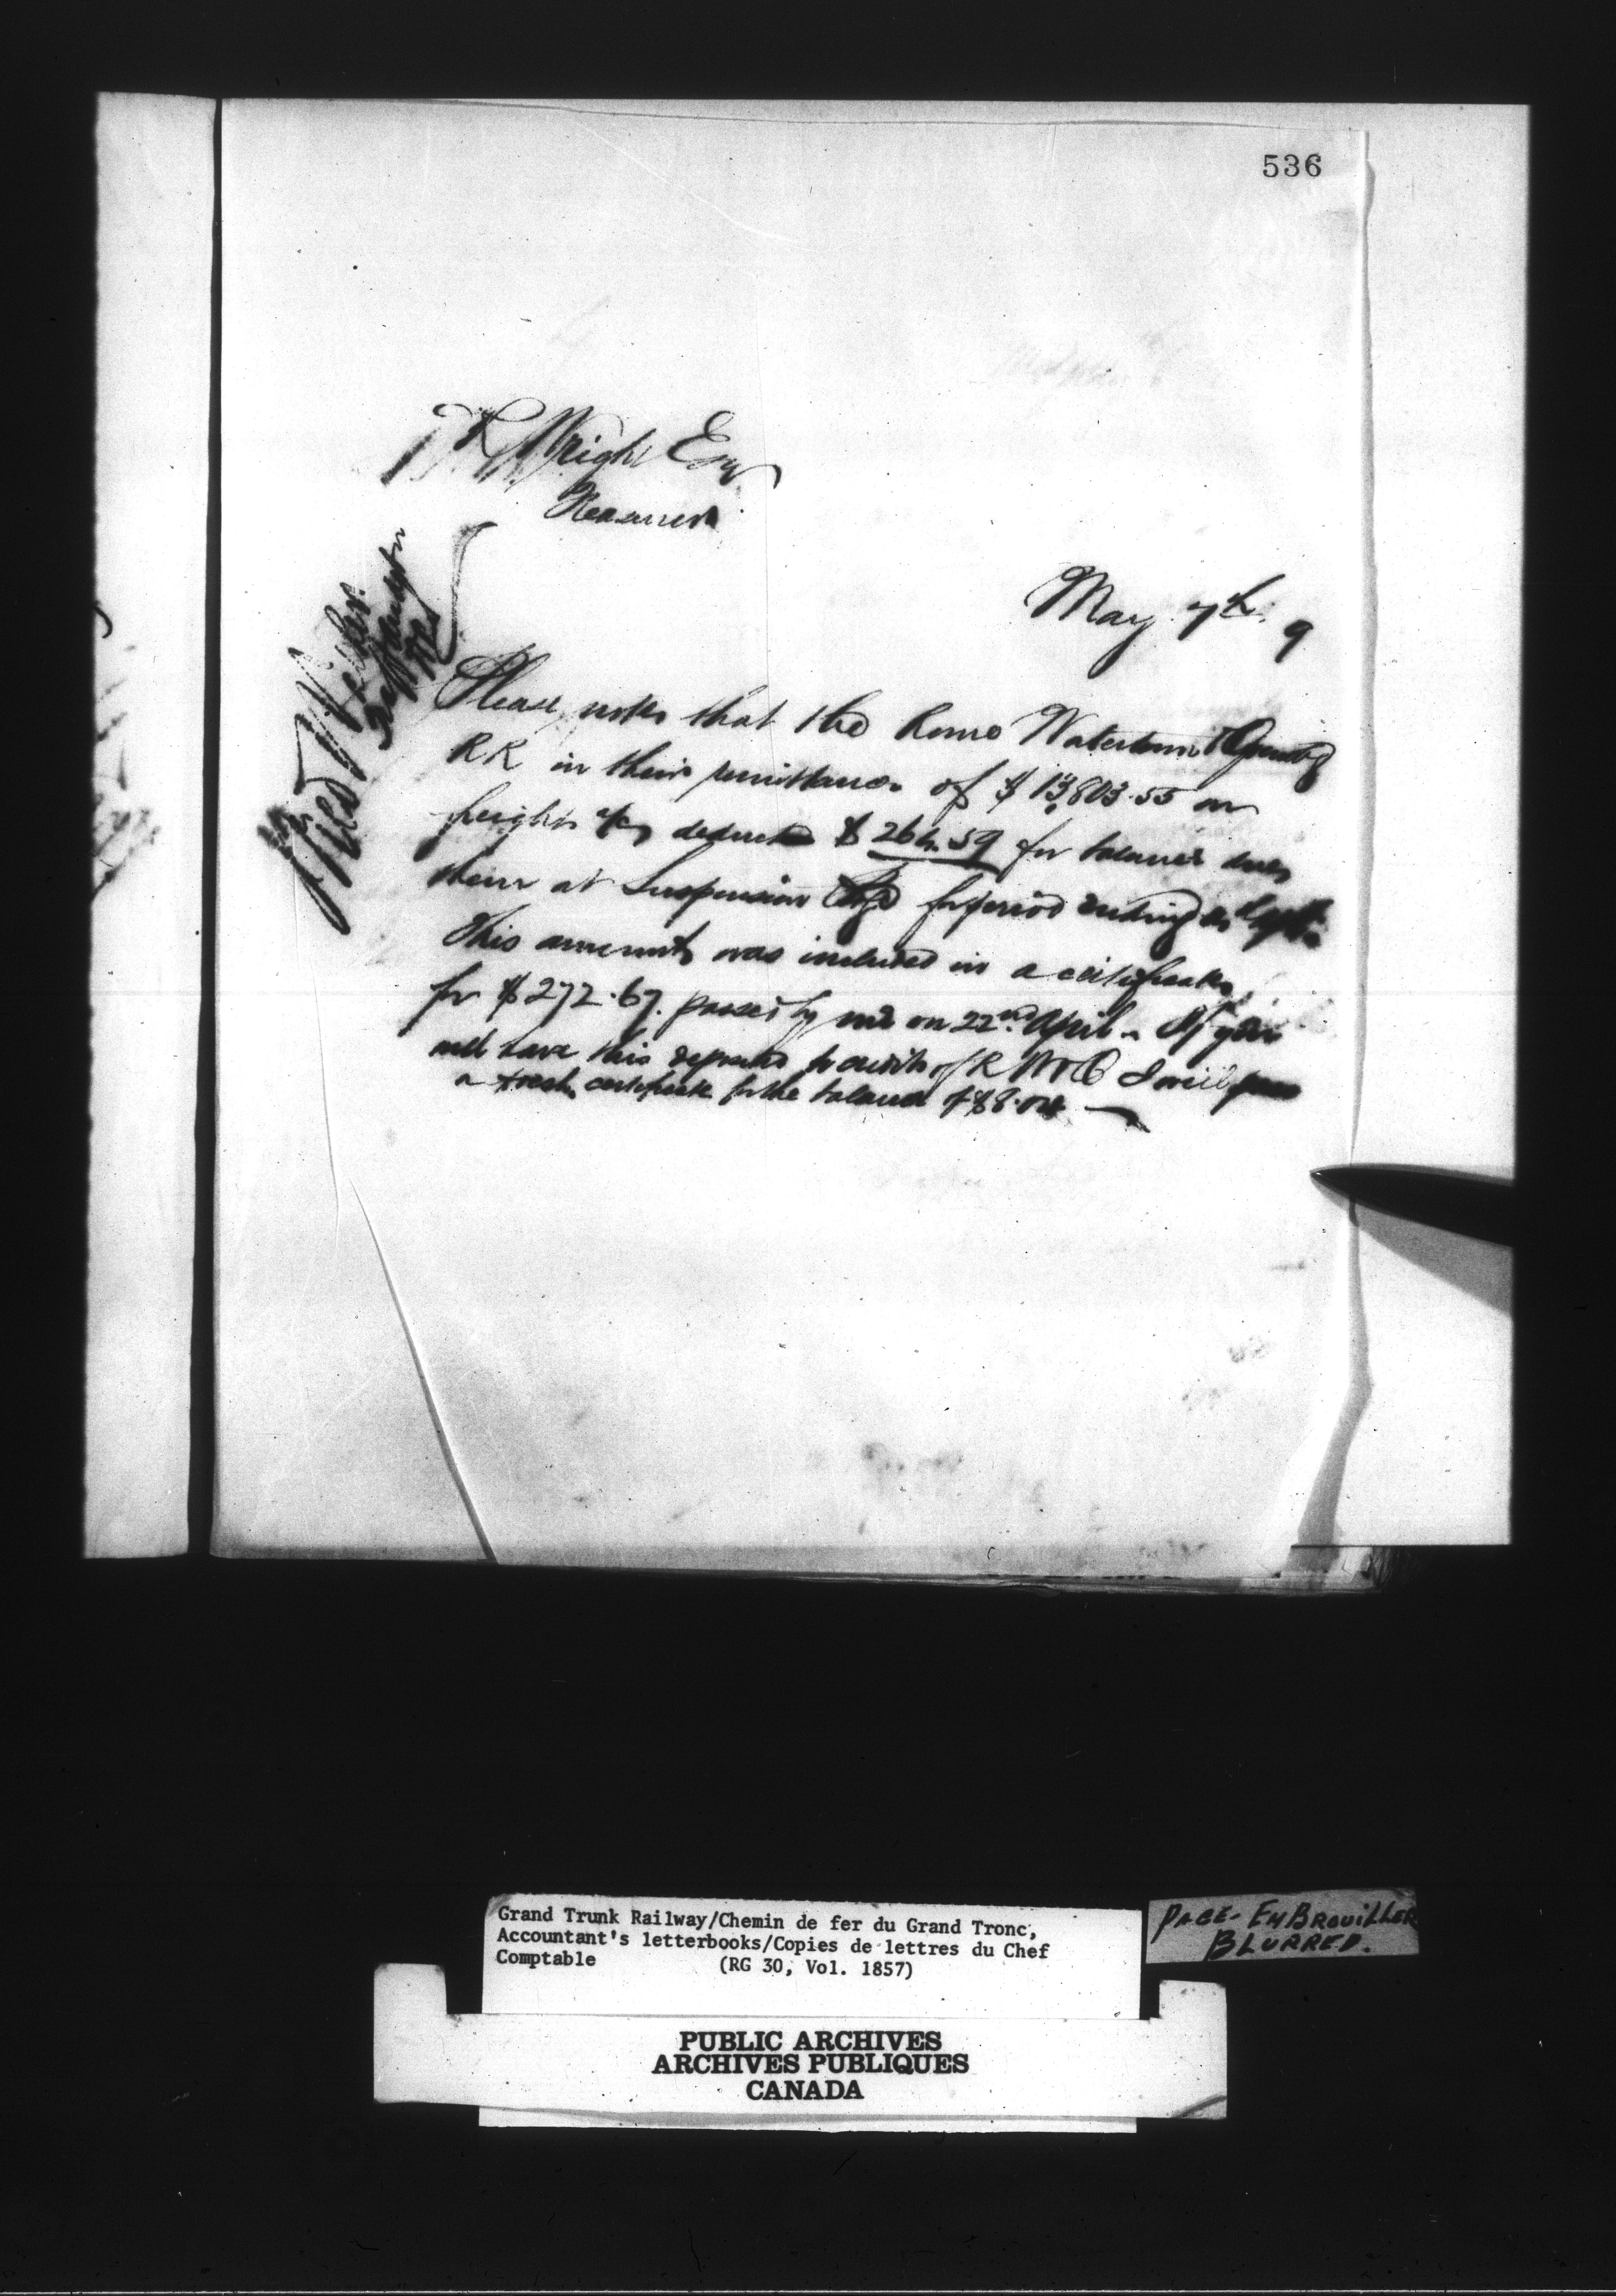 536
Wright Esq
Treasurer
May 7th 9
Please note that the Rome Watertown & Ogensbg
RR in their remittance of $ 13,803.55 on
freight a/c deduct $ 264.59 for balance due
them at Suspension Bge for period ending
This amount was included in a certificate
for $ 272.67. passed by me on 22nd April. If you
will have this deposited to credit of R W & O I will pass
a fresh certificate for the balance of $ 8.08
Grand Trunk Railway/Chemin de fer du Grand Tronc,
Accountant's letterbooks/Copies de lettres du Chef
Comptable (RG 30, Vol. 1857)
PAGE. EMBROUILLER
BLURRED.
PUBLIC ARCHIVES
ARCHIVES PUBLIQUES
CANADA